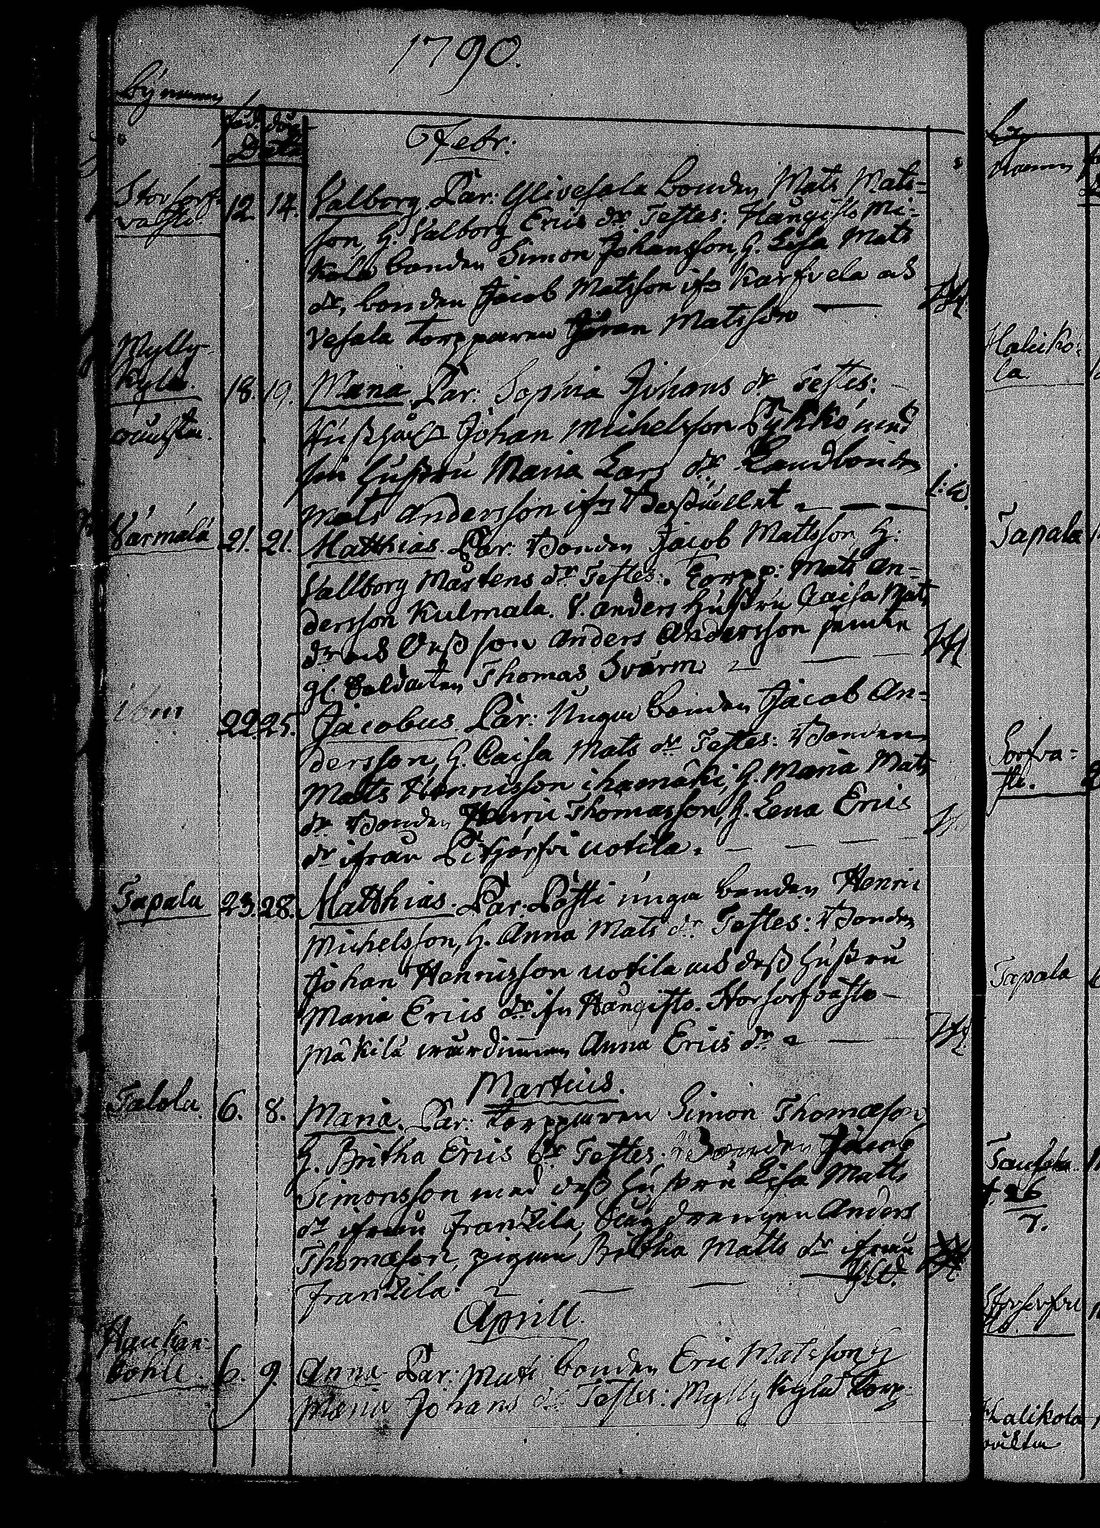 1790.
Bÿ namn
född döpt
Dat:
Febr:
Storsorf-
vasto 12. 14. Valborg. Par: Ylivesala bonden Mats Mats-
son, H. Valborg Erics dr. Testes: Haugisto Mi-
kala bonden Simon Johansson, H. Lisa Mats
dr, bonden Jacob Matsson ifrn Karfvela och
Vesala torpparen Jöran Matsson
Mylly-
kylä. 18. 19. Maria. Par: Sophia Johans dr Testes:
oäckta. Johan Michelsson Pykkö med
sin hustru Maria Lars dr Landbonden
Mats Andersson ifrn
Värmälä 21. 21. Matthias. Par: Bonden Jacob Mattsson H:
Vallborg Mårtens dr Testes: Torpp: Mats An-
dersson Kulmala. Anders hustru Caisa Mats
dr och Dess son Anders Andersson jemte
gl: Soldaten Thomas Svärm
ibm 22. 25. Jacobus. Par: Unga bonden Jacob An-
dersson, H. Caisa Mats dr Testes: Bonden
Mats Henricsson ihamäki, H. Maria Mats
dr Bonden Henric Thomasson, H. Lena Erics
dr ifrån Pitkjerfvi uotila.
Tapala 23. 28. Matthias. Par: Pösti unga bonden Henric
Michelsson, H. Anna Mats dr Testes: Bonden
Johan Henricsson uotila och dess hustru
Maria Erics dr ifrn Haugisto. Storsorfvasto
Mäkilä värdinnan Anna Erics dr
Martius.
Talola 6. 8. Maria. Par: torpparen Simon Thomasson,
H. Britha Erics dr Testes: Bonden Jacob
Simonsson med dess hustru Lisa Matts
dr ifrån Franzila, drengen Anders
Thomasson, pigan Britha Matts dr ifrån
Franzila.
Aprill.
Haukan-
kohli. 6. 9. Anna Par: bonden Eric Matsson H
Maria Johans dr Testes: Myllykylä torp:
namn
Haliko-
la.
Tapala
Sorfva-
sto.
Tapala
† 26
7.
Halikola
oäckta